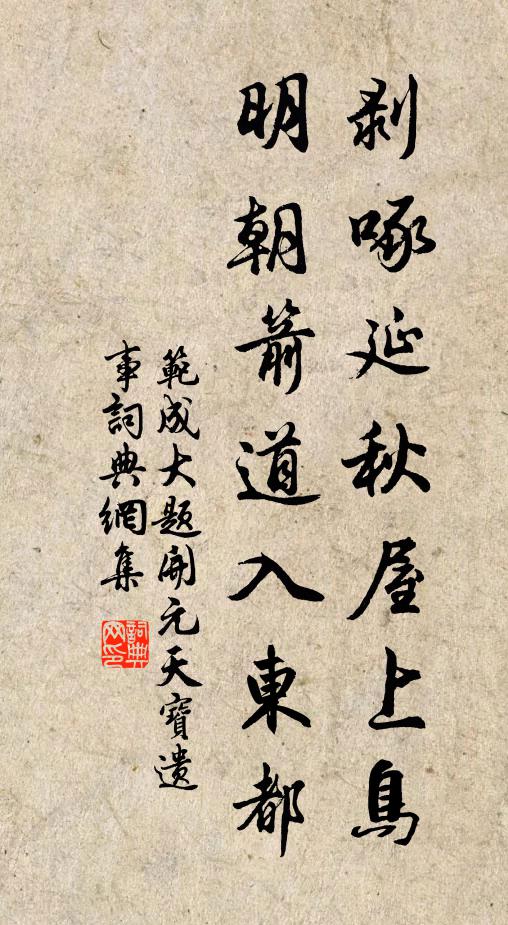 剥啄延秋屋上烏
明朝箭道入東都
範成大題開元天寶遺
事詞典網集
詞典
网印